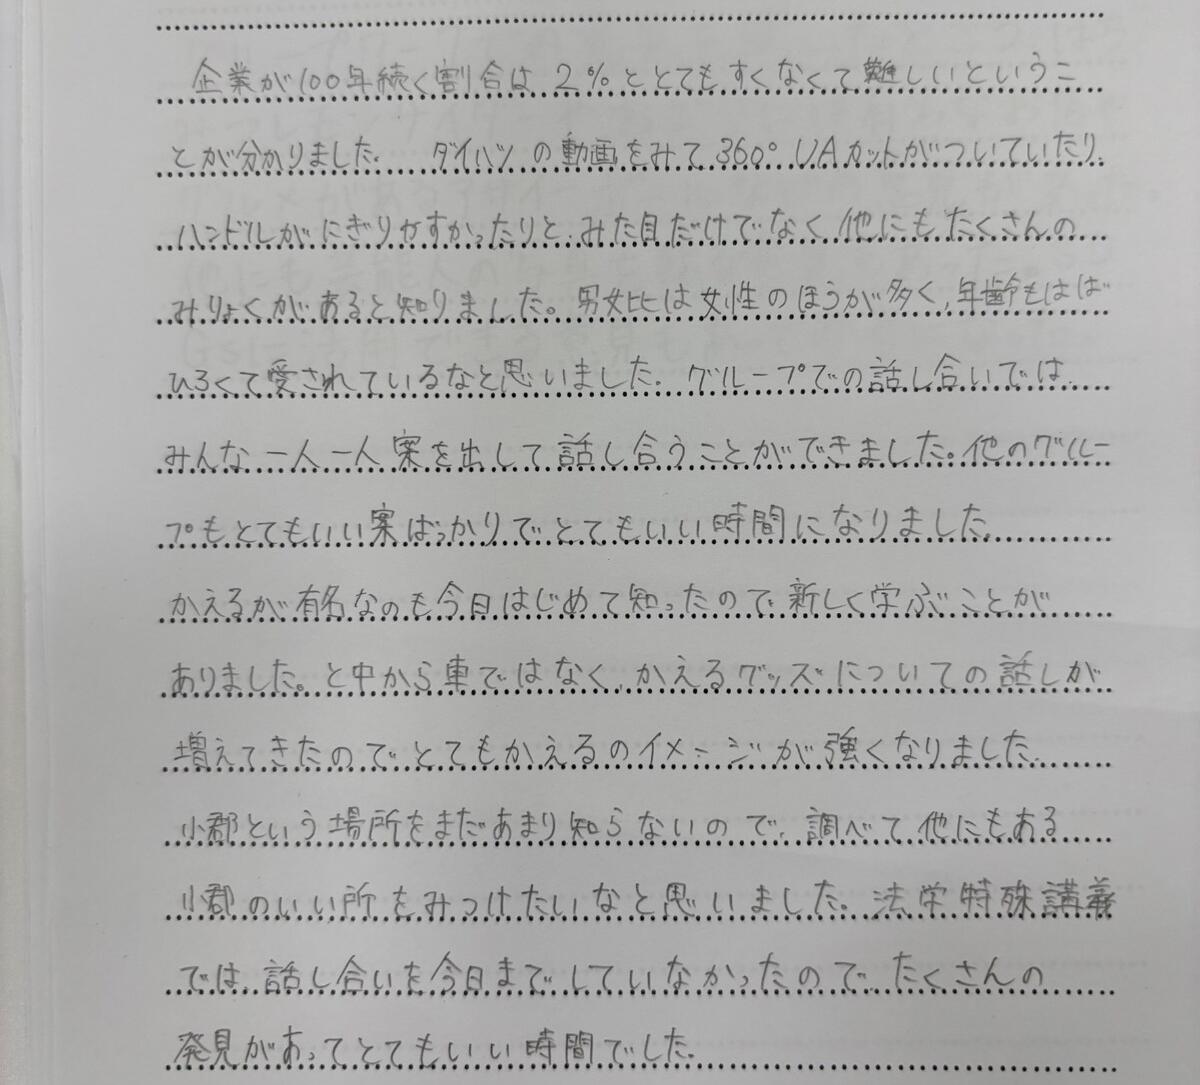 企業が100年続く割合は2%ととてもすくなくて難しいというこ
とが分かりました。ダイハツの動画をみて360°UAカットがついていたり、
ハンドルがにぎりやすかったりと、みた目だけでなく、他にもたくさんの
みりょくがあると知りました。男女比は女性のほうが多く、年齢もはば
ひろくて愛されているなと思いました。グループでの話し合いでは、
みんな一人一人案を出して話し合うことができました。他のグルー
プもとてもいい案ばっかりでとてもいい時間になりました。
かえるが有名なのも今日はじめて知ったので新しく学ぶことが
ありました。と中から車ではなく、かえるグッズについての話しが
増えてきたのでとてもかえるのイメージが強くなりました。
小郡という場所をまだあまり知らないので、調べて他にもある
小郡のいい所をみつけたいなと思いました。法学特殊講義
では、話し合いを今日までしていなかったので、たくさんの
発見があってとてもいい時間でした。